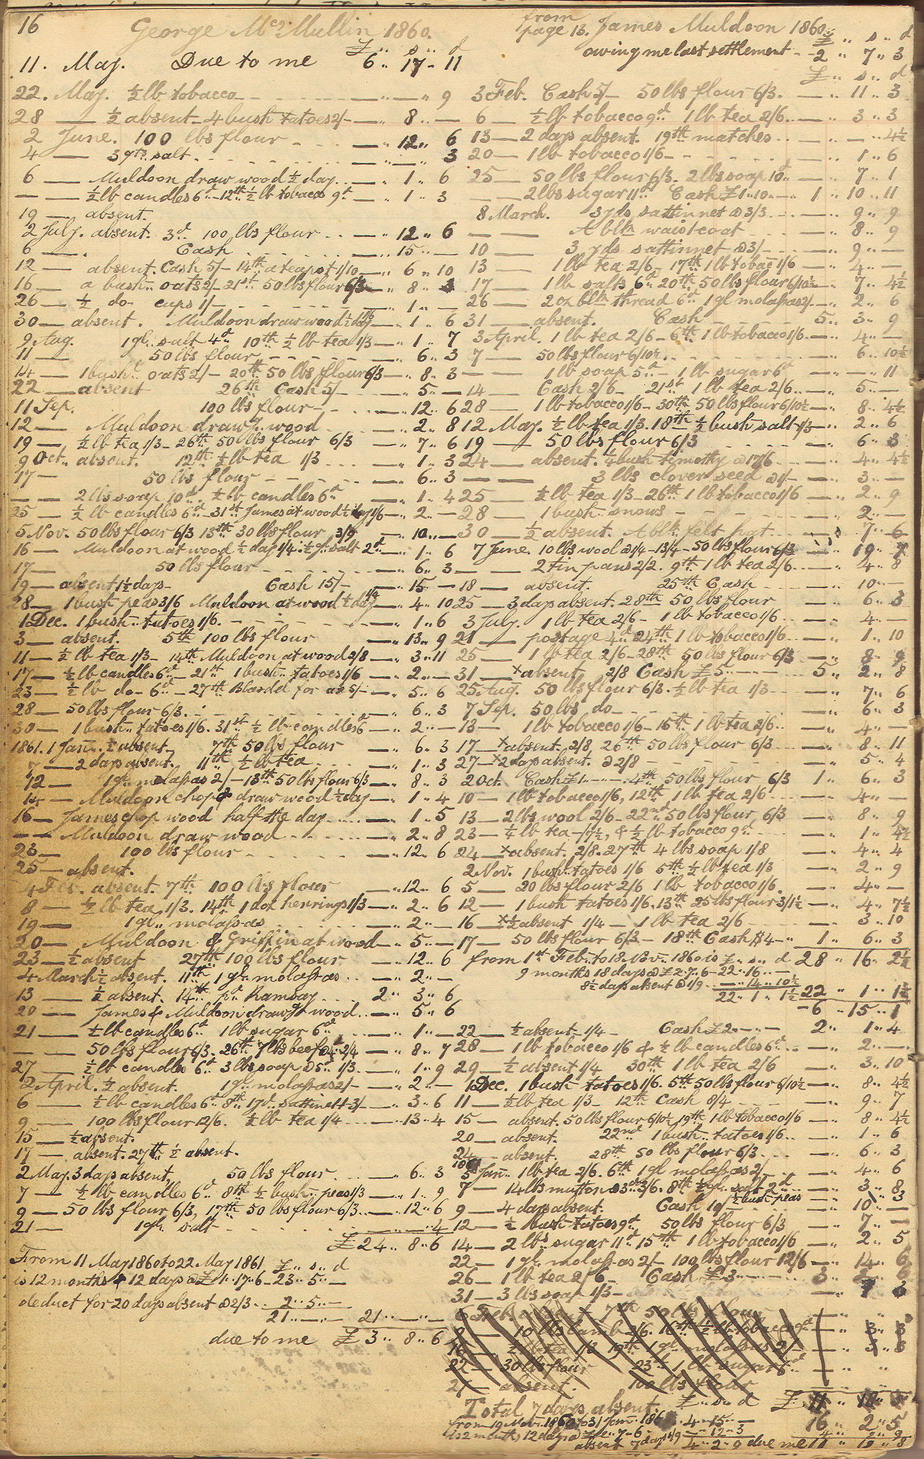 16 George McMullin 1860.
£ s d
11. May. Due to me 6.. 17.. 11
22. May. ½lb tobacco — .. — .. 9
28 — ½ absent 4 bush tatoes 2/- — .. 8 .. —
2 June. 100 lbs flour — .. 12 .. 6
4 — 3 qts. salt — .. — .. 3
6 — Muldoon draw wood ½ day — .. 1 .. 6
— — ½lb candles 6d 12th ½lb tobacco 9d — .. 1 .. 3
19 — absent.
2 July. absent. 3d 100 lbs flour — .. 12 .. 6
6 — Cash — .. 15 .. —
12 — absent. Cash 5/- 14th a teapot 1/10 — .. 6 .. 10
16 — a bush. oats 2/- 21st 50 lbs flour 6/3 — .. 8 .. 3
26 — ½ do caps 1/- — .. 1 .. —
30 — absent. Muldoon draw wood ½ day — .. 1 .. 6
9 Aug. 1 qt. salt 4d 10th ½ lb tea 1/3 — .. 1 .. 7
11 — 50 lbs flour — .. 6 .. 3
14 — 1 bush. oats 2/- 20th 50 lbs flour 6/3 — .. 8 .. 3
22 — absent 26th Cash 5/- — .. 5 .. —
11 Sep. 100 lbs flour — .. 12 .. 6
12 — Muldoon draw wood — .. 2 .. 8
19 — ½ lb tea 1/3 26th 50 lbs flour 6/3 — .. 7 .. 6
9 Oct. absent. 12th ½ lb tea 1/3 — .. 1 .. 3
17 — 50 lbs flour — .. 6 .. 3
— — 2 lbs soap 10d ½ lb candles 6d — .. 1 .. 4
25 — ½ lb candles 6d 31st James at wood ½ day 1/6 — .. 2 .. —
5 Nov. 50 lbs flour 6/3 15th 30 lbs flour 3/9 — .. 10 .. —
16 — Muldoon at wood ½ day 1/4 ½ qt. salt 2d — .. 1 .. 6
17 — 50 lbs flour — .. 6 .. 3
19 — absent 1½ days Cash 15/- — .. 15 .. —
28 — 1 bush peas 3/6 Muldoon at wood ½ day — .. 4 .. 10
1 Dec. 1 bush. tatoes 1/6 — .. 1 .. 6
3 — absent. 5th 100 lbs flour — .. 13 .. 9
11 — ½ lb tea 1/3 14th Muldoon at wood 2/8 — .. 3 .. 11
17 — ½ lb candles 6d 21st 1 bush. tatoes 1/6 — .. 2 .. —
23 — ½ lb do 6d — 27th 5/- — .. 5 .. 6
28 — 50 lbs flour 6/3 — .. 6 .. 3
30 — 1 bush. tatoes 1/6. 31st ½ lb candles 6d — .. 2 .. —
1861. 1 Jan. ½ absent. 7th 50 lbs flour — .. 6 .. 3
— 2 days absent. 11th ½ lb tea — .. 1 .. 3
12 — 1 qt. molasses 2/- 13th 50 lbs flour 6/3 — .. 8 .. 3
14 — Muldoon chop & draw wood ½ day — .. 1 .. 4
16 — James chop wood half the day — .. 1 .. 5
— — Muldoon draw wood — .. 2 .. 8
23 — 100 lbs flour — .. 12 .. 6
25 — absent.
4 Feb. absent. 7th 100 lbs flour — .. 12 .. 6
8 — ½ lb tea 1/3. 14th 1 doz herrings 1/3 — .. 2 .. 6
19 — 1 qt. molasses — .. 2 .. —
20 — Muldoon & Griffin at wood — .. 5 .. —
23 — ½ absent 27th 100 lbs flour — .. 12 .. 6
4 March ½ absent. 11th 1 qt. molasses — .. 2 .. —
13 — ½ absent. 14th pd. Ramsay 2 .. 3 .. 6
20 — James & Muldoon drawg wood — .. 5 .. 6
21 — ½ lb candles 6d 1 lb sugar 6d — .. 1 .. —
— 50 lbs flour 6/3. 26th 7 lbs beef @4d 2/4 — .. 8 .. 7
27 — ½ lb candles 6d 3 lbs soap @5d 1/3 — .. 1 .. 9
2 April. ½ absent. 1 qt. molasses 2/- — .. 2 .. —
6 — ½ lb candles 6d 8th 1 yd. sattinett 3/- — .. 3 .. 6
9 — 100 lbs flour 12/6. ½ lb tea 1/4 — .. 13 .. 4
15 — ½ absent.
17 — absent. 27th. ½ absent.
2 May. 3 days absent, 50 lbs flour — .. 6 .. 3
7 — ½ lb candles 6d 8th ½ bush. peas 1/3 — .. 1 .. 9
9 — 50 lbs flour 6/3, 17th 50 lbs flour 6/3 — .. 12 .. 6
21 — 1 qt. salt — .. — .. 4
£ 24 .. 8 .. 6
From 11 May 1860 to 22 May 1861 £ .. s .. d
is 12 months & 12 days @ £1-17-6 — 23 .. 5 .. —
deduct for 20 days absent @ 2/3 — 2 .. 5 .. —
21 .. — .. — 21 .. — .. —
due to me £ 3 .. 8 .. 6
from page 13. James Muldoon 1860.
£ .. s .. d
owing me last settlement — 2 .. 7 .. 3
£ .. s .. d
3 Feb. Cash 5/- 50 lbs flour 6/3 — .. 11 .. 3
6 — ½ lb tobacco 9d 1 lb tea 2/6 — .. 3 .. 3
13 — 2 days absent. 19th matches — .. — .. 4½
20 — 1 lb tobacco 1/6 — .. 1 .. 6
25 — 50 lbs flour 6/3. 2 lbs soap 10d — .. 7 .. 1
— 2 lbs sugar 11d Cash £1..10 .. — 1 .. 10 .. 11
8 March. 3 yds sattinnet @ 3/3 — .. 9 .. 9
— A blk waistcoat — .. 8 .. 9
10 — 3 yds sattinnet @ 3/- — .. 9 .. —
13 — 1 lb tea 2/6. 17th 1 lb tobac 1/6 — .. 4 .. —
17 — 1 lb salts 6d 20th 50 lbs flour 6/10½ — .. 7 .. 4½
26 — 2 oz blk thread 6d 1 qt molasses 2/- — .. 2 .. 6
31 — absent. Cash 5 .. 3 .. 9
3 April. 1 lb tea 2/6 — 6th 1 lb tobacco 1/6 — .. 4 .. —
7 — 50 lbs flour 6/10½ — .. 6 .. 10½
— 1 lb soap 5d — 1 lb sugar 6d — .. — .. 11
14 — Cash 2/6 — 21st 1 lb tea 2/6 — .. 5 .. —
28 — 1 lb tobacco 1/6 — 30th 50 lbs flour 6/10½ — .. 8 .. 4½
12 May. ½ lb tea 1/3. 18th ½ bush salt 1/3 — .. 2 .. 6
19 — 50 lbs flour 6/3 — .. 6 .. 3
24 — absent. ¼ bush tymothy @ 17/6 — .. 4 .. 4½
— 3 lbs clover seed @ 1/- — .. 3 .. —
25 — ½ lb tea 1/3 — 26th 1 lb tobacco 1/6 — .. 2 .. 9
28 — 1 bush snows — .. 2 .. —
30 — ½ absent. A blk felt hat — .. 7 .. 6
7 June. 10 lbs wool @ 1/4 - 13/4 — 50 lbs flour 6/3 — .. 19 .. 7
— 2 tin pans 2/2. 9th 1 lb tea 2/6 — .. 4 .. 8
18 — absent. 25th Cash — .. 10 .. —
25 — 3 days absent. 28th 50 lbs flour — .. 6 .. 3
3 July. 1 lb tea 2/6 — 1 lb tobacco 1/6 — .. 4 .. —
21 — postage 4d 24th 1 lb tobacco 1/6 — .. 1 .. 10
25 — 1 lb tea 2/6 — 28th 50 lbs flour 6/3 — .. 8 .. 9
31 — x absent 2/8 Cash £5 5 .. 2 .. 8
25 Aug. 50 lbs flour 6/3 — ½ lb tea 1/3 — .. 7 .. 6
7 Sep. 50 lbs. do — .. 6 .. 3
13 — 1 lb tobacco 1/6 — 15th 1 lb tea 2/6 — .. 4 .. —
17 — x absent, 2/8, 26th 50 lbs flour 6/3 — .. 8 .. 11
27 — x 2 days absent. @ 2/8 — .. 5 .. 4
2 Oct. Cash £1 — 4th 50 lbs flour 6/3 1 .. 6 .. 3
10 — 1 lb tobacco 1/6, 12th 1 lb tea 2/6 — .. 4 .. —
13 — 2 lbs wool 2/6 — 22d 50 lbs flour 6/3 — .. 8 .. 9
23 — ½ lb tea — 7½, & ½ lb tobacco 9d — .. 1 .. 4½
24 — x absent, 2/8. 27th 4 lbs soap 1/8 — .. 4 .. 4
2 Nov. 1 bush. tatoes 1/6 5th ½ lb tea 1/3 — .. 2 .. 9
5 — 20 lbs flour 2/6 1 lb tobacco 1/6 — .. 4 .. —
12 — 1 bush tatoes 1/6. 13th 25 lbs flour 3/1½ — .. 4 .. 7½
16 — x ½ absent 1/4 — 1 lb tea 2/6 — .. 3 .. 10
17 — 50 lbs flour 6/3 — 18th Cash $4 — 1 .. 6 .. 3
from 1st Feb. to 18 Nov. 1860 is £ .. s .. d 28 .. 16 .. 2½
9 months 18 days @ £2-7-6 — 22 .. 16 .. —
8½ days absent @ 1/9 — .. 14 .. 10½
22 .. 1 .. 1½ 22 .. 1 .. 1½
6 .. 15 .. 1
22 — ½ absent 1/4 — Cash £2 2 .. 1 .. 4
28 — 1 lb tobacco 1/6 & ½ lb candles 6d — .. 2 .. —
29 — ½ absent 1/4 30th 1 lb tea 2/6 — .. 3 .. 10
1 Dec. 1 bush tatoes 1/6. 5th 50 lbs flour 6/10½ — .. 8 .. 4½
11 — ½ lb tea 1/3 — 12th Cash 8/4 — .. 9 .. 7
15 — absent. 50 lbs flour 6/10½ 19th 1 lb tobacco 1/6 — .. 8 .. 4½
20 — absent. 22nd 1 bush. tatoes 1/6 — .. 1 .. 6
24 — absent. 28th 50 lbs flour 6/3 — .. 6 .. 3
5 Jan. 1 lb tea 2/6. 6th 1 qt molasses 2/- — .. 4 .. 6
7 — 14 lbs mutton @ 3d 3/6. 8th ½ qt. salt 2d — .. 3 .. 8
½ bush peas
9 — 4 days absent. Cash 10/- — .. 10 .. —
12 — ½ bush tatoes 9d. 50 lbs flour 6/3 — .. 7 .. —
14 — 2 lbs sugar 11d 15th 1 lb tobacco 1/6 — .. 2 .. 5
22 — 1 qt. molasses 2/- 100 lbs flour 12/6 — .. 14 .. 6
26 — 1 lb tea 2/6 — Cash £3 3 .. 2 .. 6
31 — 3 lbs soap 1/3
6 Feb. 7th 50 lbs flour
10 lbs lamb 16th ½ lb tobacco 9d
1 lb tea 19th 1 qt molasses
22 — 30 lbs flour 23d 1 lb sugar 6d
absent. 100 lbs flour
Total 7 days absent. £ .. s .. d
from 19 Nov. 1860 to 31 Jan. 1861 4 .. 15 .. — 16 .. 2 .. 5
is 2 month 12 days @ £2-7-6 — 12 .. 3
absent 7 days 1/9 4 .. 2 .. 9 due me